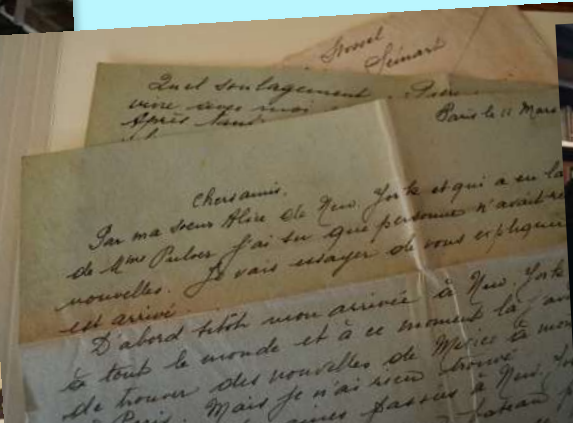 Quel soulagement
vivre avec moi
Après tant
Paris le 11 Mars
Chers amis,
Par ma soeur Alice de New. York et qui a eu la
de Mme Pulver j'ai su que personne n'avait
nouvelles. Je vais essayer de vous expliquer
est arrivé.
D'abord titôt mon arrivée à New. York
à tout le monde et à ce moment là
de trouver des nouvelles de Mexico à mon
à Paris. Mais je n'ai rien trouvé
passés à New. York
bateau